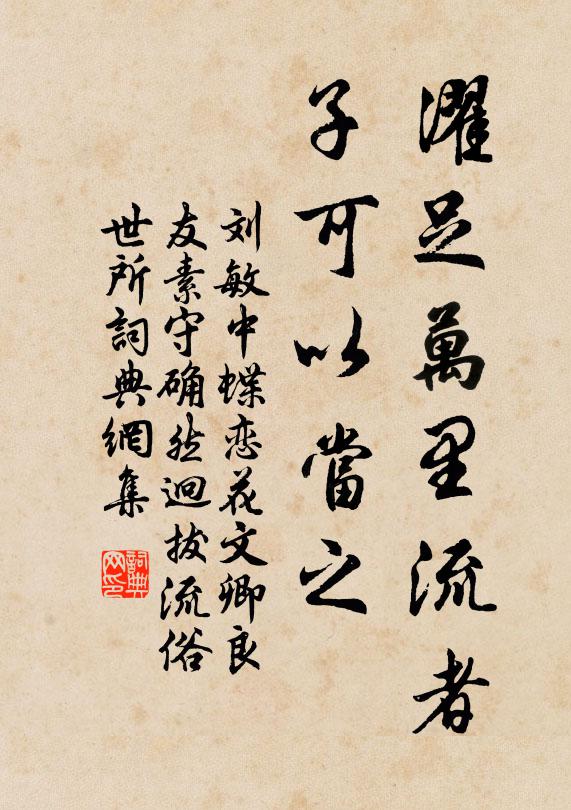 濯足萬里流者
子可以當之
刘敏中蝶恋花文卿良
友素守确然迥拔流俗
世所詞典網集
詞典网印